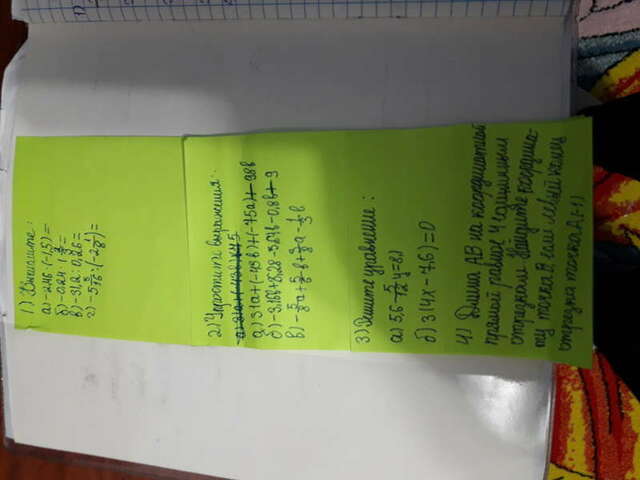 1) Вычислите:
а) -2,46 · (-1,5) =
б) -0,24 · 1 =
в) -31,2 : 0,26 =
г) -5 5/16 : (-2 1/8) =
2) Упростите выражения:
а) 31а+(-43в)
а) 31а+(-43в)+(-75а)+ 98в
б) -3,16в+8,28-3,64в-0,8в+ 9
в) -5/8а+5/6в+3/8а-1/3в
3) Решите уравнение:
а) 5,6-5/12y=8,1
б) 3(4x-7,6)=0
4) Длина АВ на координатной
прямой равное 4 единичным
отрезкам. Найдите координа-
ту точка В если левый конец
отрезка точка А(-1)
1)